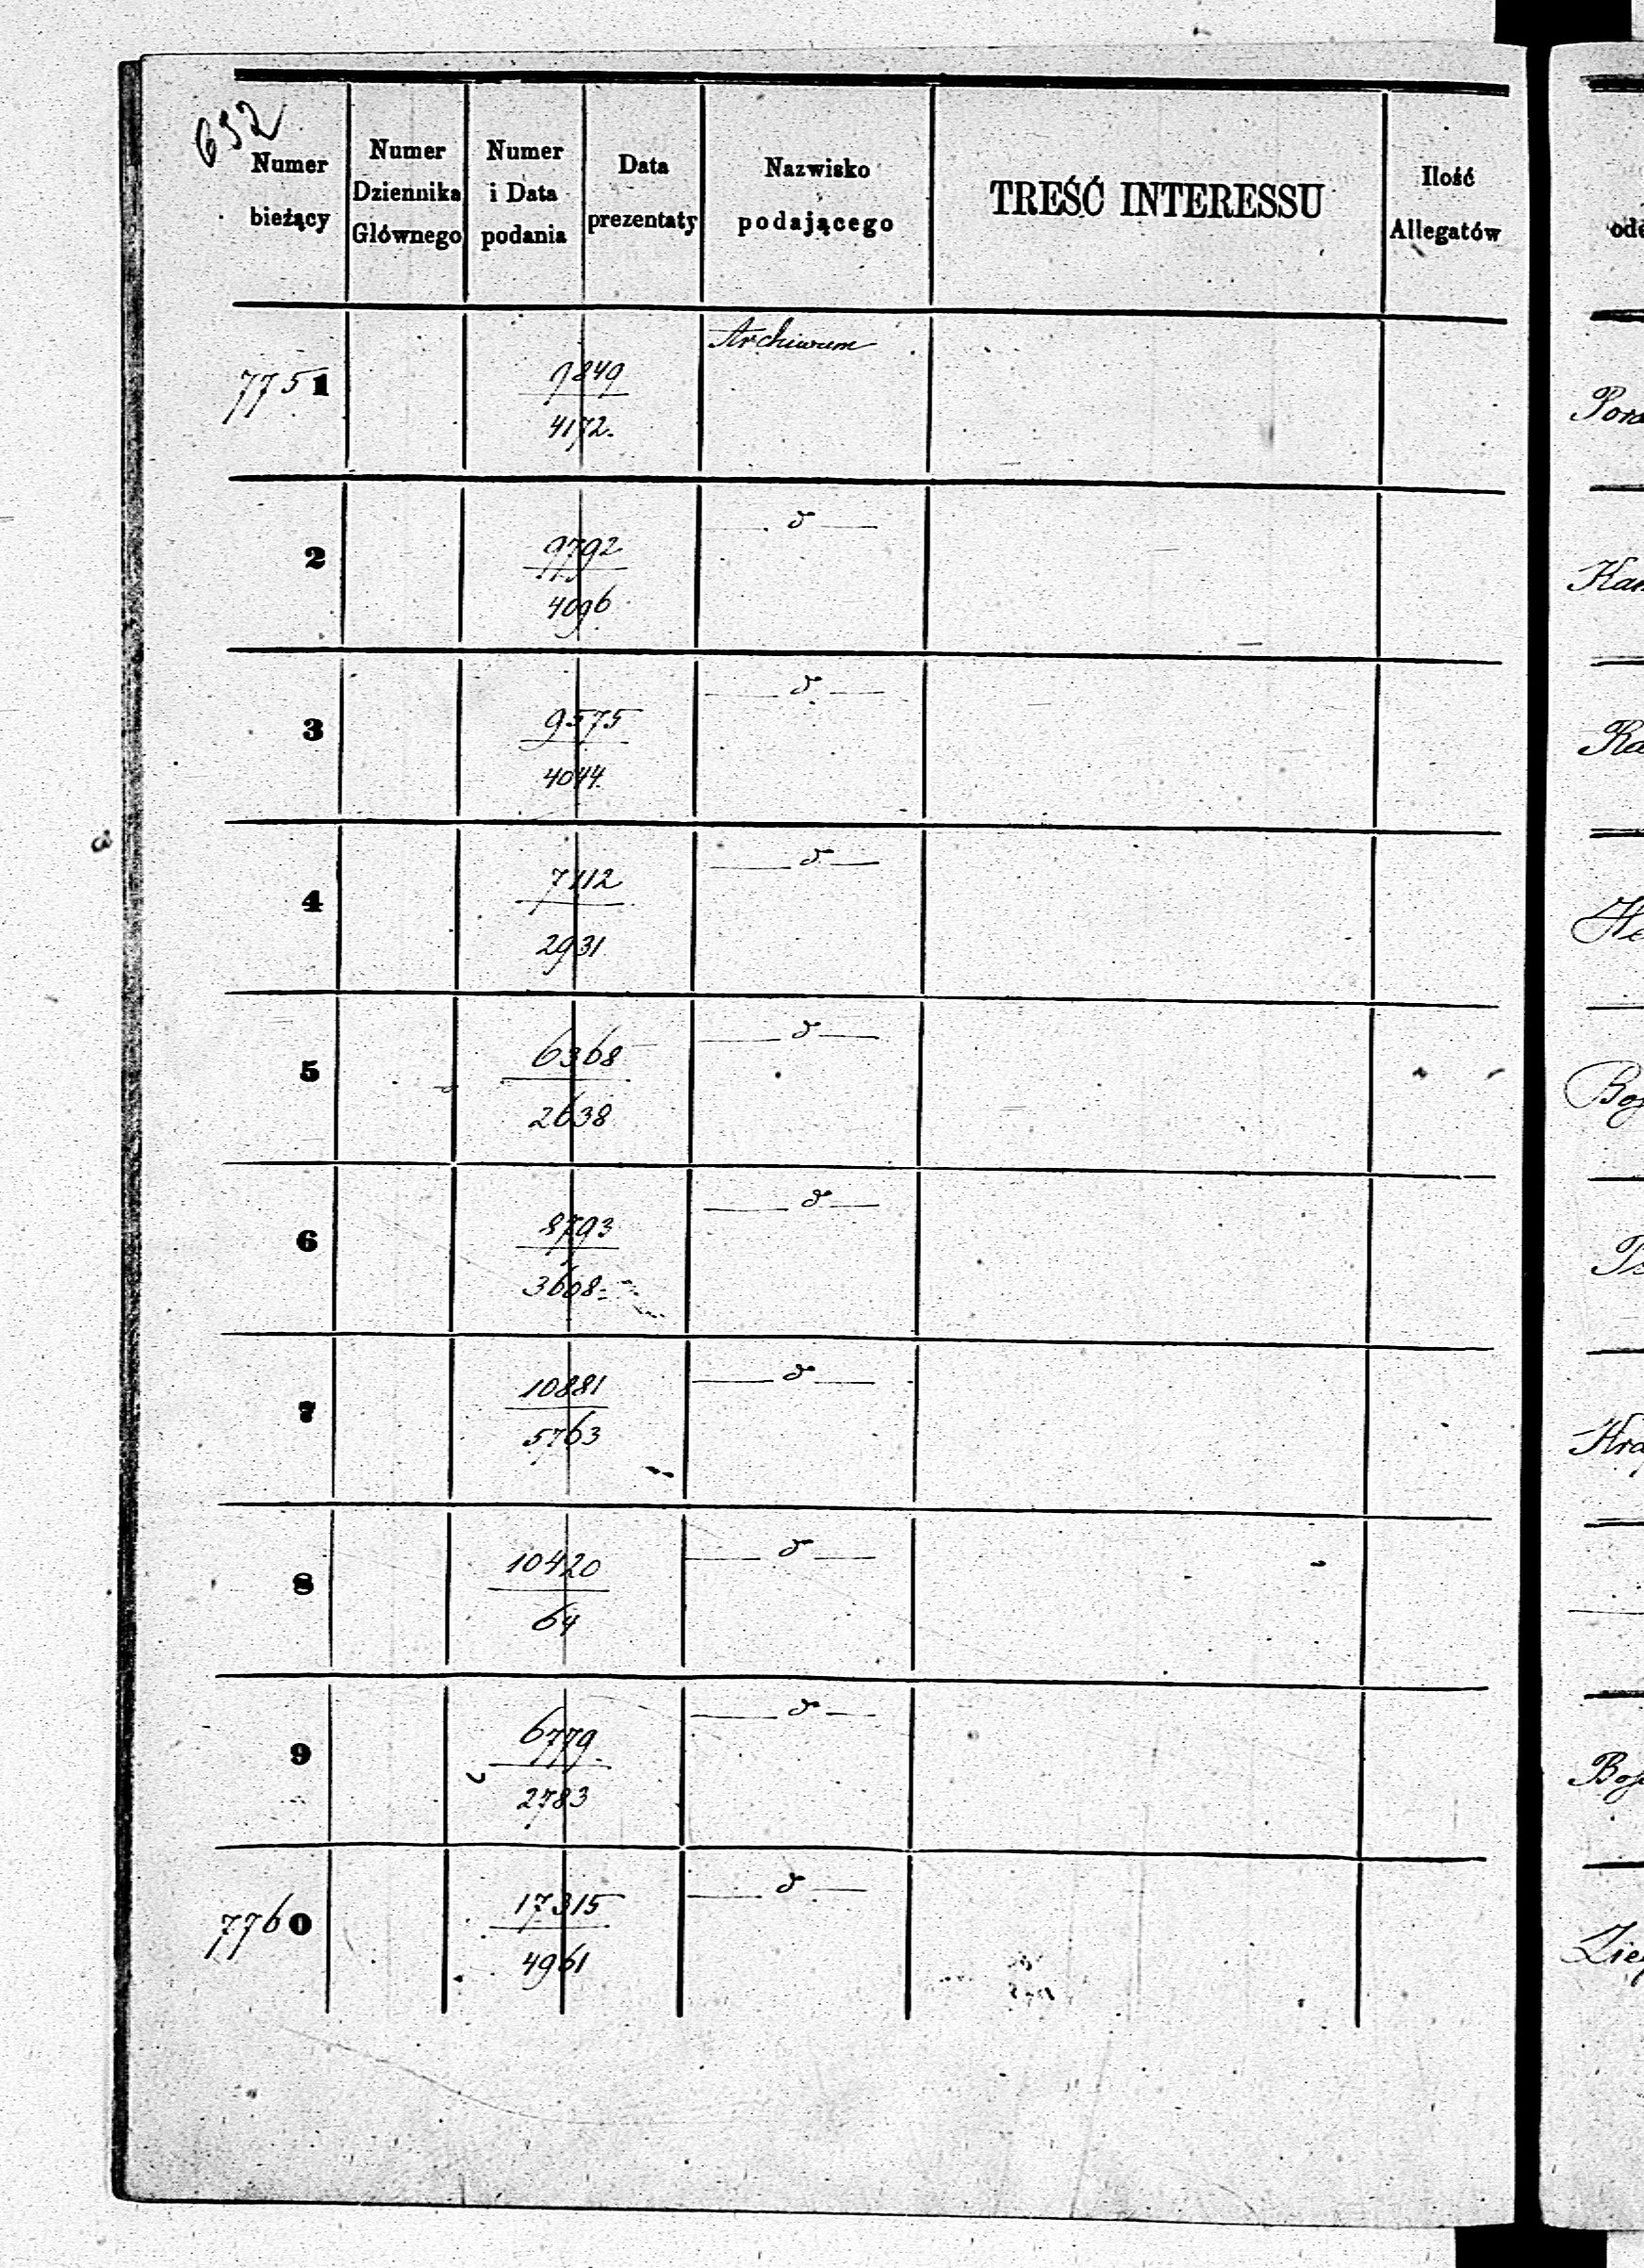 632
Numer bieżący
Numer Dziennika Głównego
Numer i Data podania
Data prezentaty
Nazwisko podającego
TREŚĆ INTERESSU
Ilość Allegatów
Archiwum
7751
9849
4172.
d
2
9792
4096
d
3
9575
4044.
d
4
7112
2931
d
5
6368
2638
d
6
8793
3608
d
7
10881
5763
d
8
10420
64
d
9
6779
2783
d
7760
17315
4961